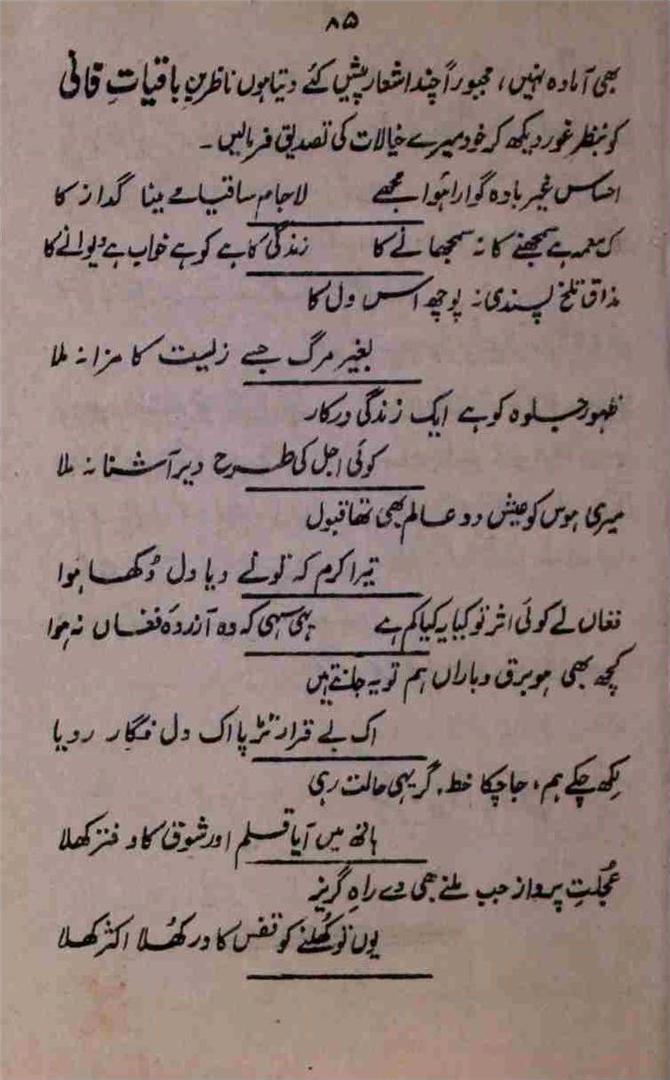 ۸۵
بھی آمادہ نہیں، مجبوراً چند اشعار پیش کئے دیتا ہوں ناظرینِ باقیاتِ فانی
کو بنظر غور دیکھ کر خود میرے خیالات کی تصدیق فرمالیں۔
احساس غیر بادہ گوارا ہوا مجھے لاجام ساقیا مے مینا گداز کا
اک معمہ ہے سمجھنے کا نہ سمجھانے کا زندگی کاہے کو ہے خواب ہے دیوانے کا
مذاق تلخ پسندی نہ پوچھ اس دل کا
بغیر مرگ جسے زلیست کا مزا نہ ملا
ظہور جلوہ کو ہے ایک زندگی درکار
کوئی اجل کی طرح دیر آشنا نہ ملا
میری ہوس کو عیش دو عالم بھی تھا قبول
تیرا کرم کہ تونے دیا دل دُکھا ہوا
فغاں لے کوئی اثر تو کیا یہ کیا کم ہے یہی سہی کہ وہ آزردہ فغاں نہ ہوا
کچھ بھی ہو برق و باراں ہم تو یہ جانتے ہیں
اک بے قرار تڑپا اک دل فگار رویا
لِکھ چکے ہم، جا چکا خط، گر یہی حالت رہی
ہاتھ میں آیا قلم اور شوق کا دفتر کھلا
عُجلتِ پرواز جب ملنے بھی دے راہِ گریز
یوں تو کُھلنے کو قفس کا در کُھلا اکثر کھلا